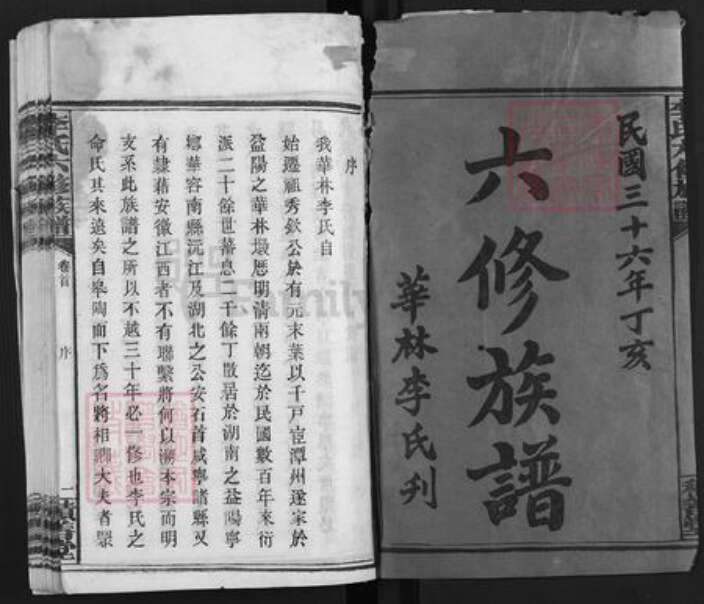 民國三十六年丁亥
六修族譜
華林李氏刋
序
我華林李氏自
始遷祖秀欽公於有元末葉以千戸宦潭州遂家於
益陽之華林塅歷明清兩朝迄於民國數百年來衍
派二十餘世蕃息二千餘丁散居於湖南之益陽寧
鄉華容南縣沅江及湖北之公安石首咸寧諸縣又
有隸藉安徽江西者不有聯繫將何以溯本宗而明
支系此族譜之所以不越三十年必一修也李氏之
命氏其來遠矣自皋陶而下爲名將相卿大夫者眾
李氏六修族譜
卷首
序